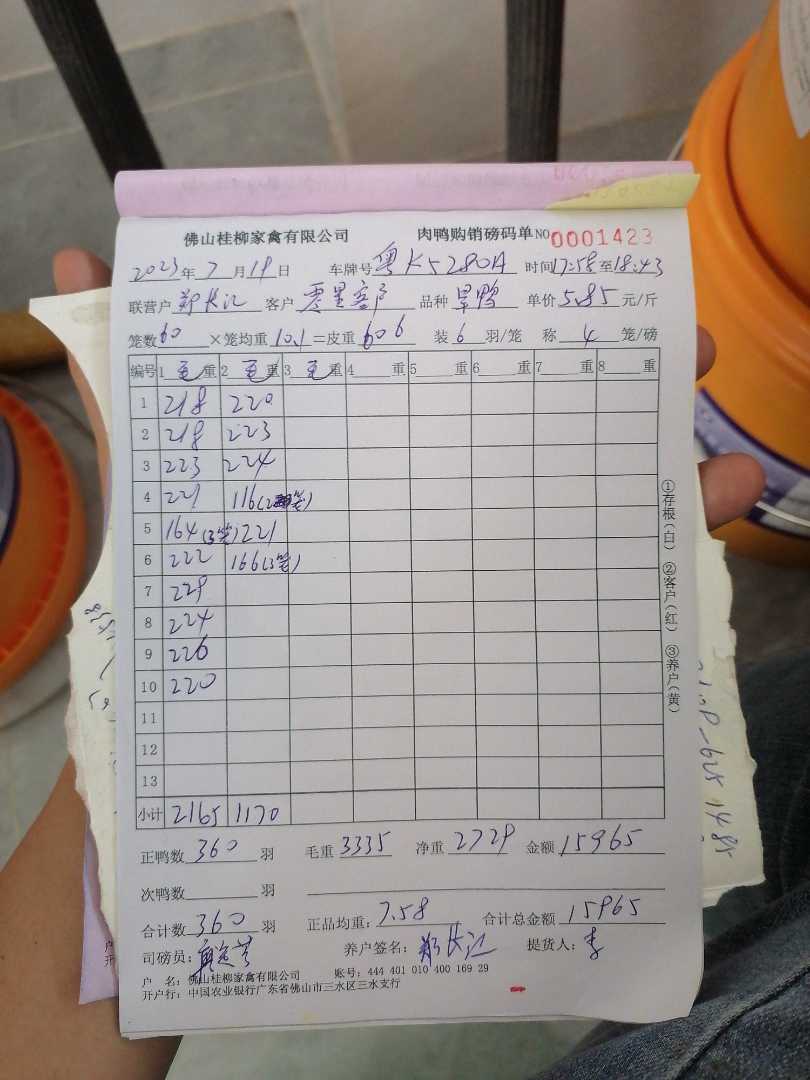 佛山桂柳家禽有限公司 肉鸭购销磅码单 NO 0001423
2023年7月19日 车牌号 粤K5280A 时间 17:58至18:43
联营户 郑长江 客户 零星客户 品种 旱鸭 单价 5.85 元/斤
笼数 60 ×笼均重 10.1 =皮重 606 装 6 羽/笼 称 4 笼/磅
编号 1 毛重 2 毛重 3 毛重 4 重 5 重 6 重 7 重 8 重
1 218 220
2 218 223
3 223 224
4 221 116(2笼)
5 164(3笼) 221
6 222 166(3笼)
7 229
8 224
9 226
10 220
11
12
13
小计 2165 1170
正鸭数 360 羽 毛重 3335 净重 2729 金额 15965
次鸭数 羽
合计数 360 羽 正品均重: 7.58 合计总金额 15965
司磅员: 养户签名: 郑长江 提货人: 李
户 名: 佛山桂柳家禽有限公司 账号: 444 401 010 400 169 29
开户行: 中国农业银行广东省佛山市三水区三水支行
①存根(白) ②客户(红) ③养户(黄)